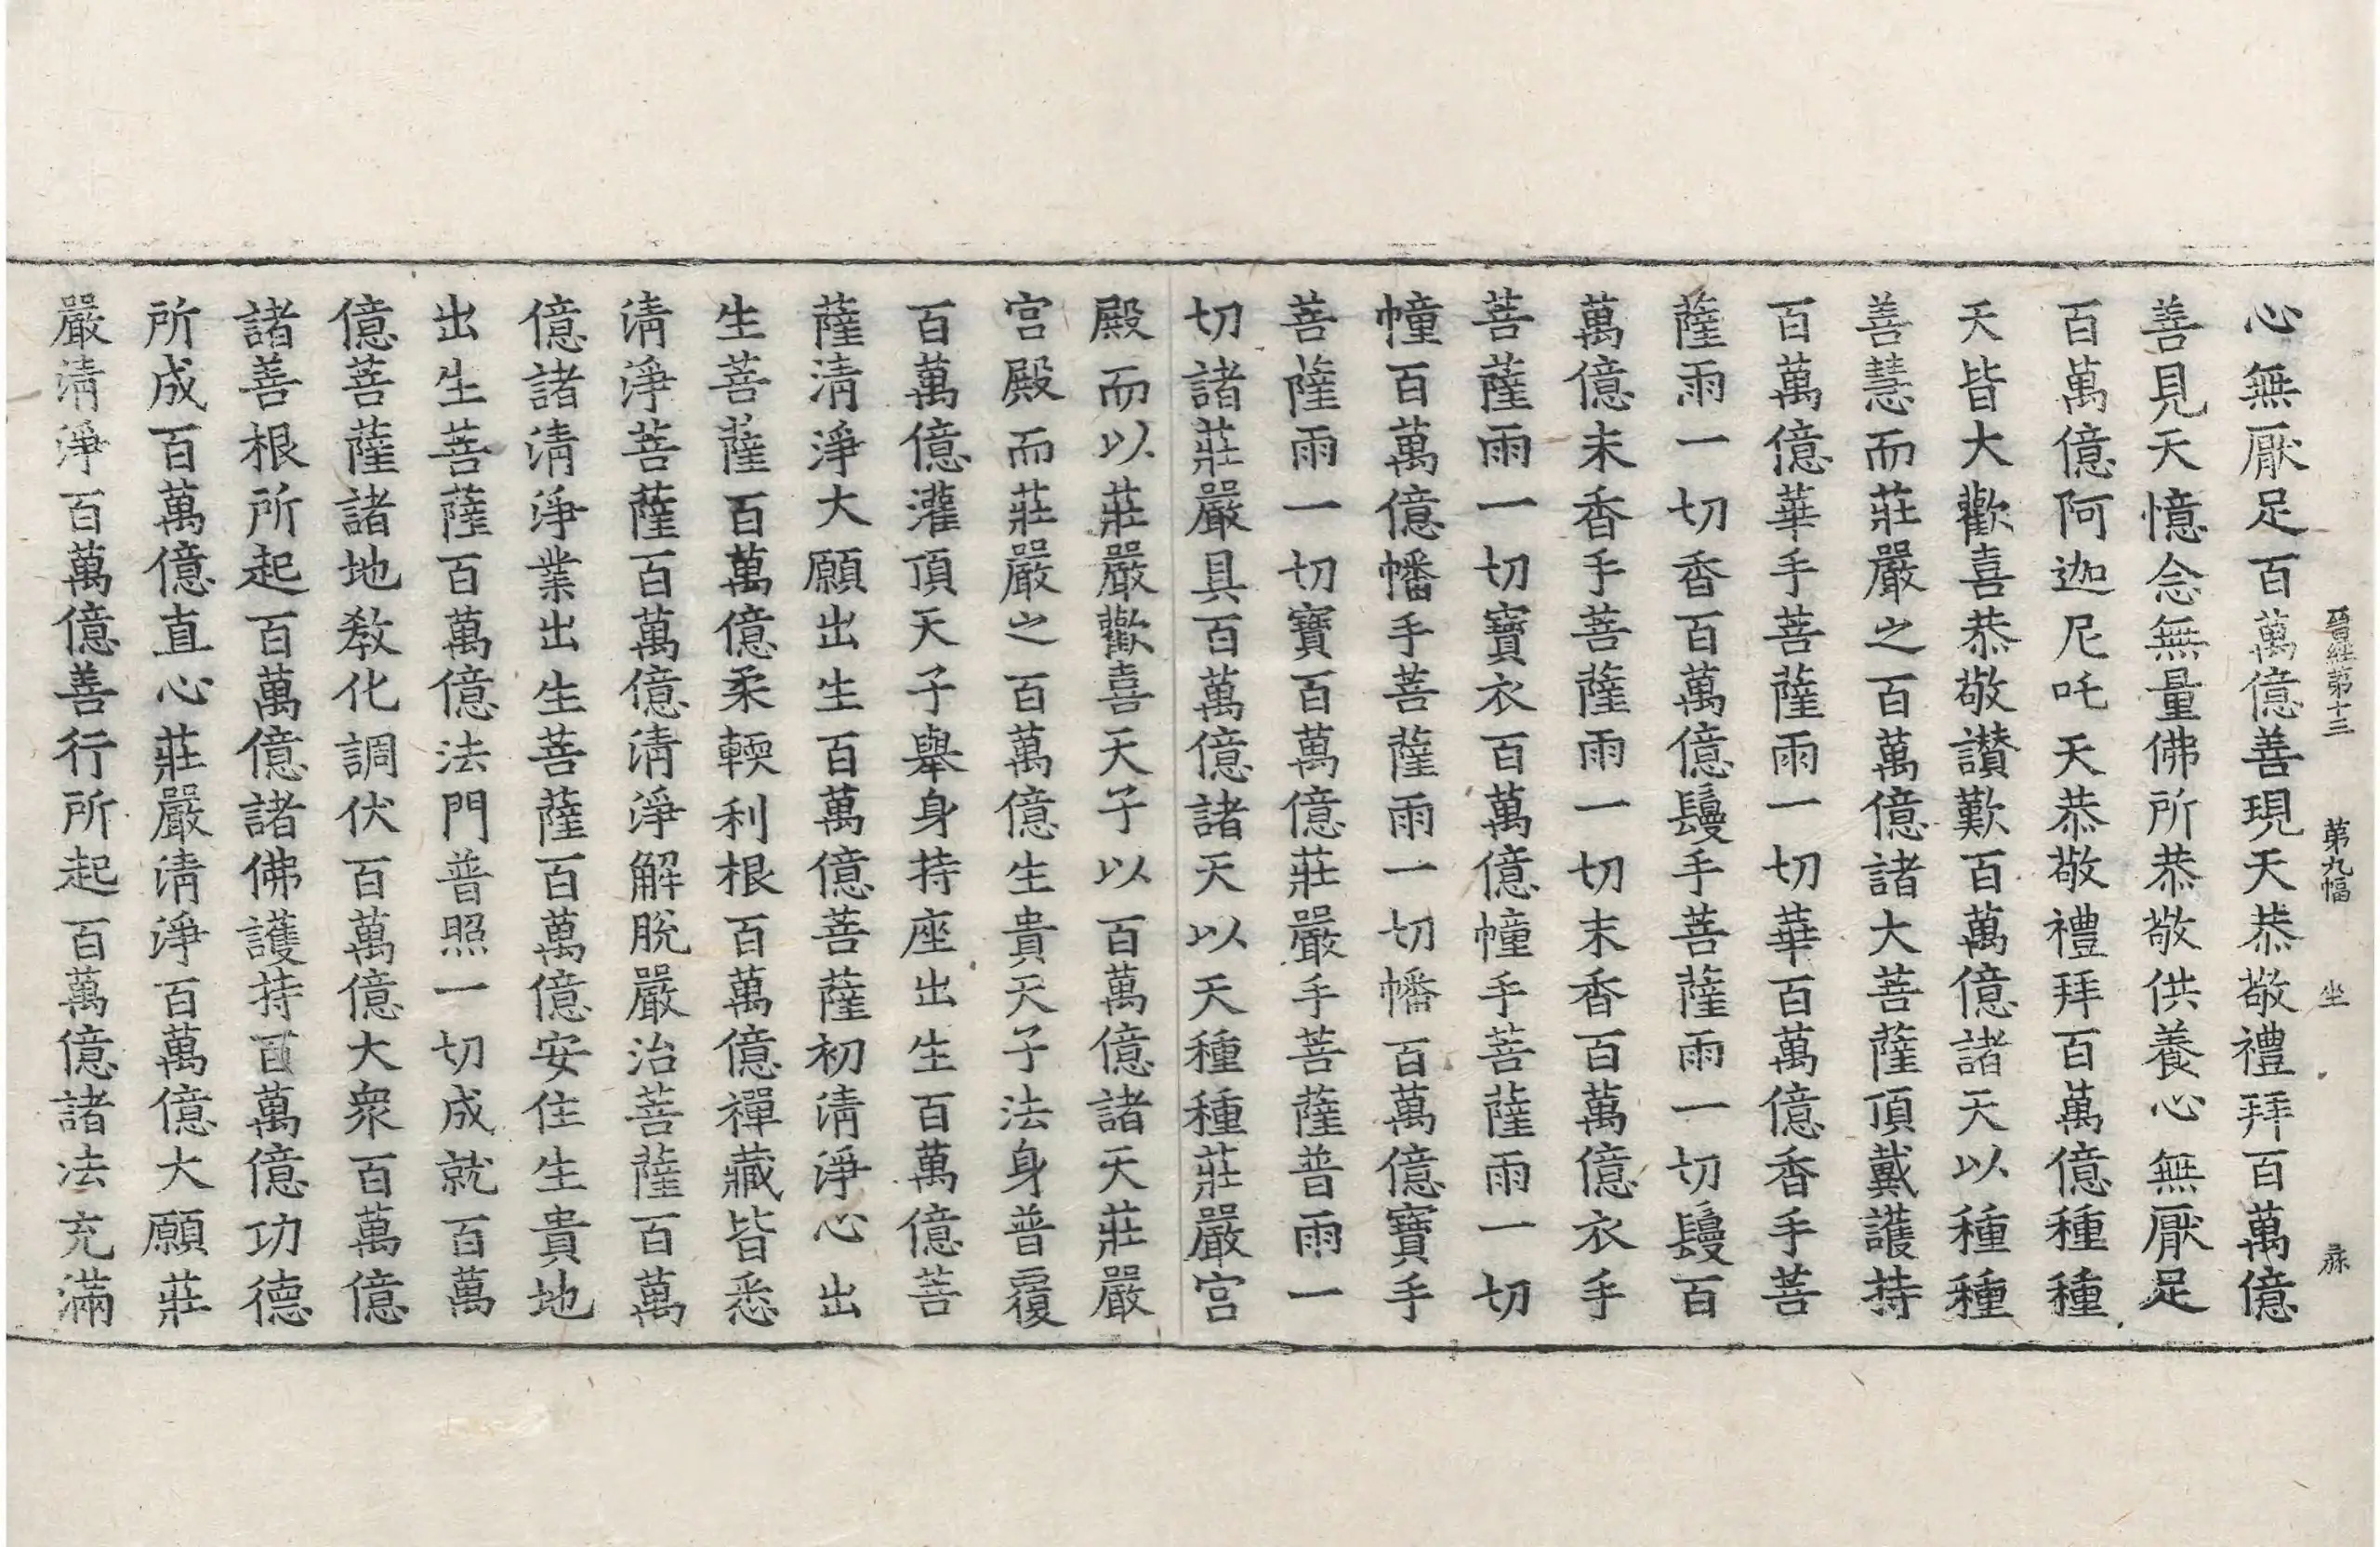 晉經第十三　第九幅　坐
心無厭足百萬億善現天恭敬禮拜百萬億
善見天憶念無量佛所恭敬供養心無厭足
百萬億阿迦尼吒天恭敬禮拜百萬億種種
天皆大歡喜恭敬讃歎百萬億諸天以種種
善慧而莊嚴之百萬億諸大菩薩頂戴護持
百萬億華手菩薩雨一切華百萬億香手菩
薩雨一切香百萬億鬘手菩薩雨一切鬘百
萬億末香手菩薩雨一切末香百萬億衣手
菩薩雨一切寶衣百萬億幢手菩薩雨一切
幢百萬億幡手菩薩雨一切幡百萬億寶手
菩薩雨一切寶百萬億莊嚴手菩薩普雨一
切諸莊嚴具百萬億諸天以天種種莊嚴宮
殿而以莊嚴歡喜天子以百萬億諸天莊嚴
宮殿而莊嚴之百萬億生貴天子法身普覆
百萬億灌頂天子舉身持座出生百萬億菩
薩淸淨大願出生百萬億菩薩初淸淨心出
生菩薩百萬億柔輭利根百萬億禪藏皆悉
淸淨菩薩百萬億淸淨解脫嚴治菩薩百萬
億諸淸淨業出生菩薩百萬億安住生貴地
出生菩薩百萬億法門普照一切成就百萬
億菩薩諸地敎化調伏百萬億大衆百萬億
諸善根所起百萬億諸佛護持百萬億功德
所成百萬億直心莊嚴淸淨百萬億大願莊
嚴淸淨百萬億善行所起百萬億諸法充滿